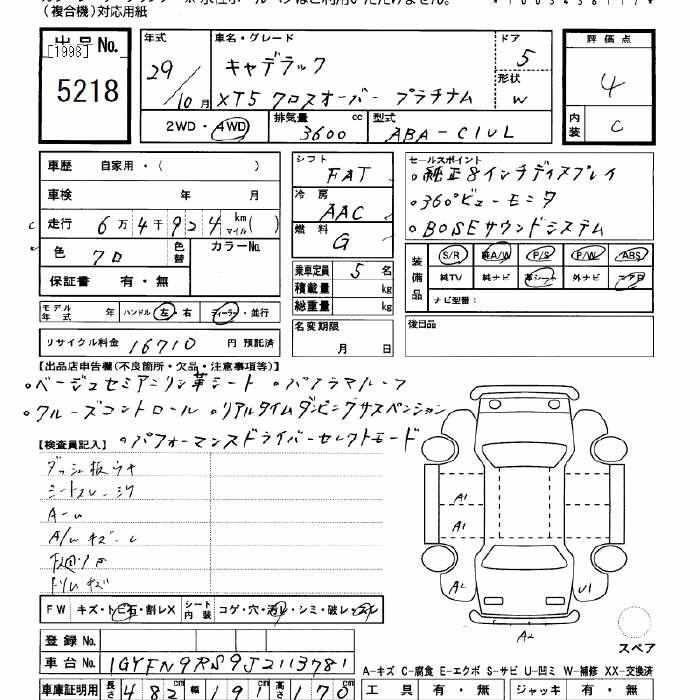 (複合機)対応用紙
出品No. [1998] 5218
年式 29/10月
車名・グレード キャデラック
XT5 クロスオーバー プラチナム
ドア 5
形状 W
評価点 4
内装 C
2WD・4WD 排気量 3600cc 型式 ABA-C1UL
車歴 自家用・( )
車検 年 月
走行 6万4千924 km マイル( )
色 クロ 色替 カラーNo.
保証書 有・無
シフト FAT
冷房 AAC
燃料 G
乗車定員 5名
積載量 kg
総重量 kg
セールスポイント
。純正8インチディスプレイ
。360°ビューモニタ
。BOSEサウンドシステム
装備品 S/R 純A/W P/S P/W ABS
純TV 純ナビ 革シート 外ナビ エアB
ナビ型番:
モデル年式 年 ハンドル 左・右 ディーラー・並行
リサイクル料金 16710 円 預託済
名変期限 月 日
後日品
【出品店申告欄(不良箇所・欠品・注意事項等)】
。ベージュセミアニリン革シート 。パノラマルーフ
。クルーズコントロール 。リアルタイムダンピングサスペンション
。パフォーマンスドライバーセレクトモード
【検査員記入】
ダッシュ板ウキ
シートスレ・シワ
A1
A1
A2
U1
A2
FW キズ・ト石・割レX シート内装 コゲ・穴・汚レ・シミ・破レ・スレ
スペア
登録No.
車台No. 1GYFN9RS9J2113781
A-キズ C-腐食 E-エクボ S-サビ U-凹ミ W-補修 XX-交換済
車庫証明用 長さ 482cm 幅 191cm 高さ 170cm
工具 有・無 ジャッキ 有・無